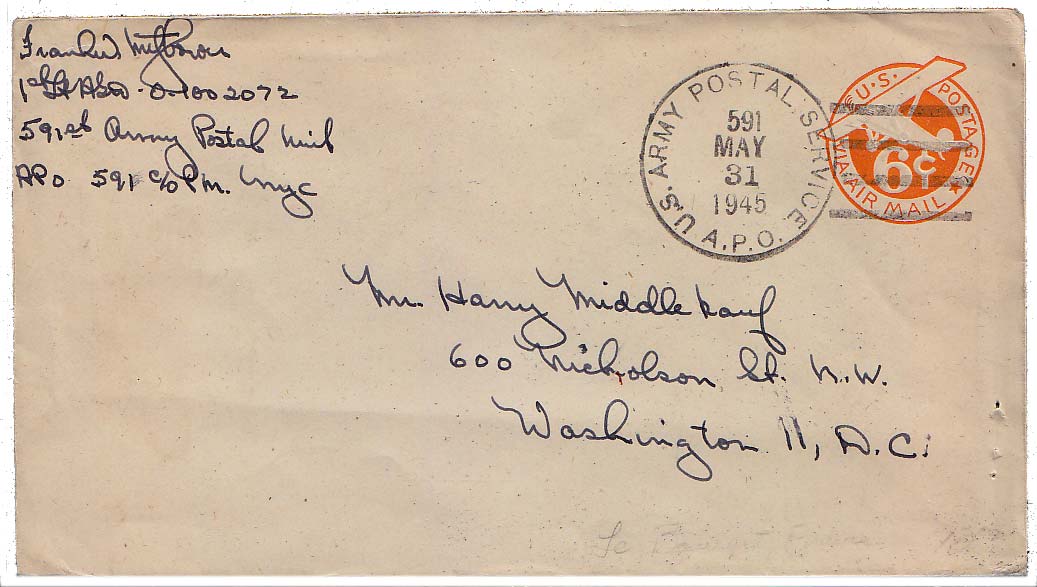 1st Lt AGD - O-1002072
591st Army Postal Unit
APO 591 c/o P.M. NYC
U.S. ARMY POSTAL SERVICE
A.P.O.
591
MAY
31
1945
U.S. POSTAGE
6¢
VIA AIR MAIL
Mr. Harry Middlekauf
600 Nicholson St. N.W.
Washington 11, D.C.
Le Bourget France